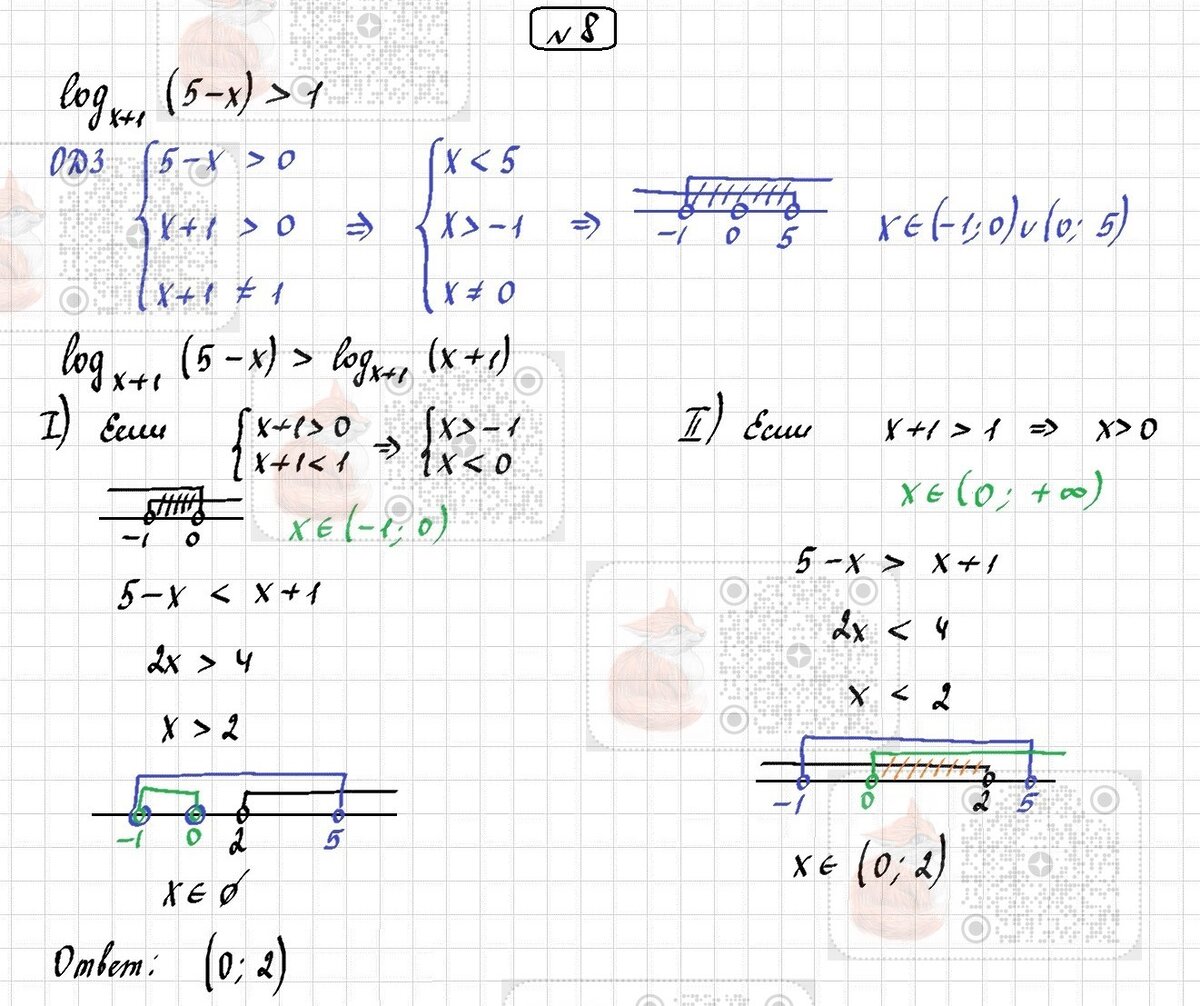 № 8
log_{x+1} (5-x) > 1
ОДЗ { 5-x > 0 { x < 5
x+1 > 0 ⇒ x > -1 ⇒ -1 0 5 x ∈ (-1; 0) ∪ (0; 5)
x+1 ≠ 1 x ≠ 0
log_{x+1} (5-x) > log_{x+1} (x+1)
I) Если { x+1 > 0 ⇒ { x > -1
x+1 < 1 x < 0
-1 0 x ∈ (-1; 0)
5-x < x+1
2x > 4
x > 2
-1 0 2 5
x ∈ ∅
II) Если x+1 > 1 ⇒ x > 0
x ∈ (0; +∞)
5-x > x+1
2x < 4
x < 2
-1 0 2 5
x ∈ (0; 2)
Ответ: (0; 2)